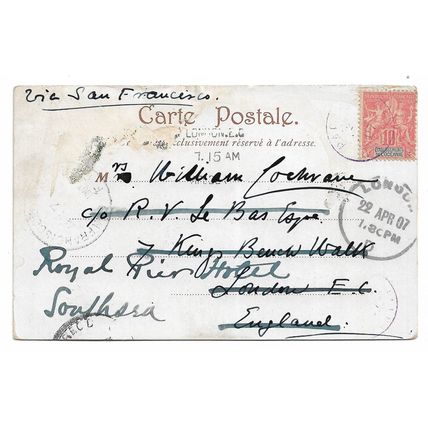 via San Francisco.
Carte Postale.
LONDON. E.C
exclusivement réservé à l'adresse.
7.15 AM
Mrs William Cochrane
c/o R. V. Le Bas Esqre
7 King's Bench Walk
Royal Pier Hotel
London E.C.
Southsea
England.
10
LONDON
22 APR 07
1.30PM